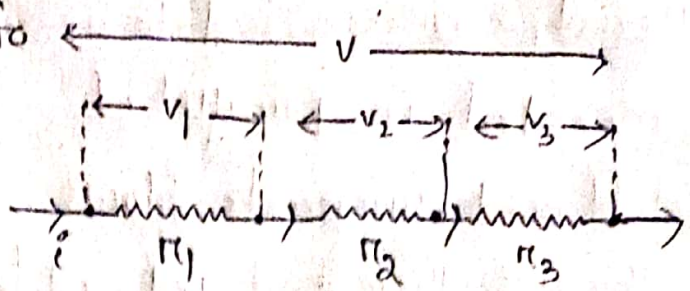 V
V₁ V₂ V₃
i r₁ r₂ r₃